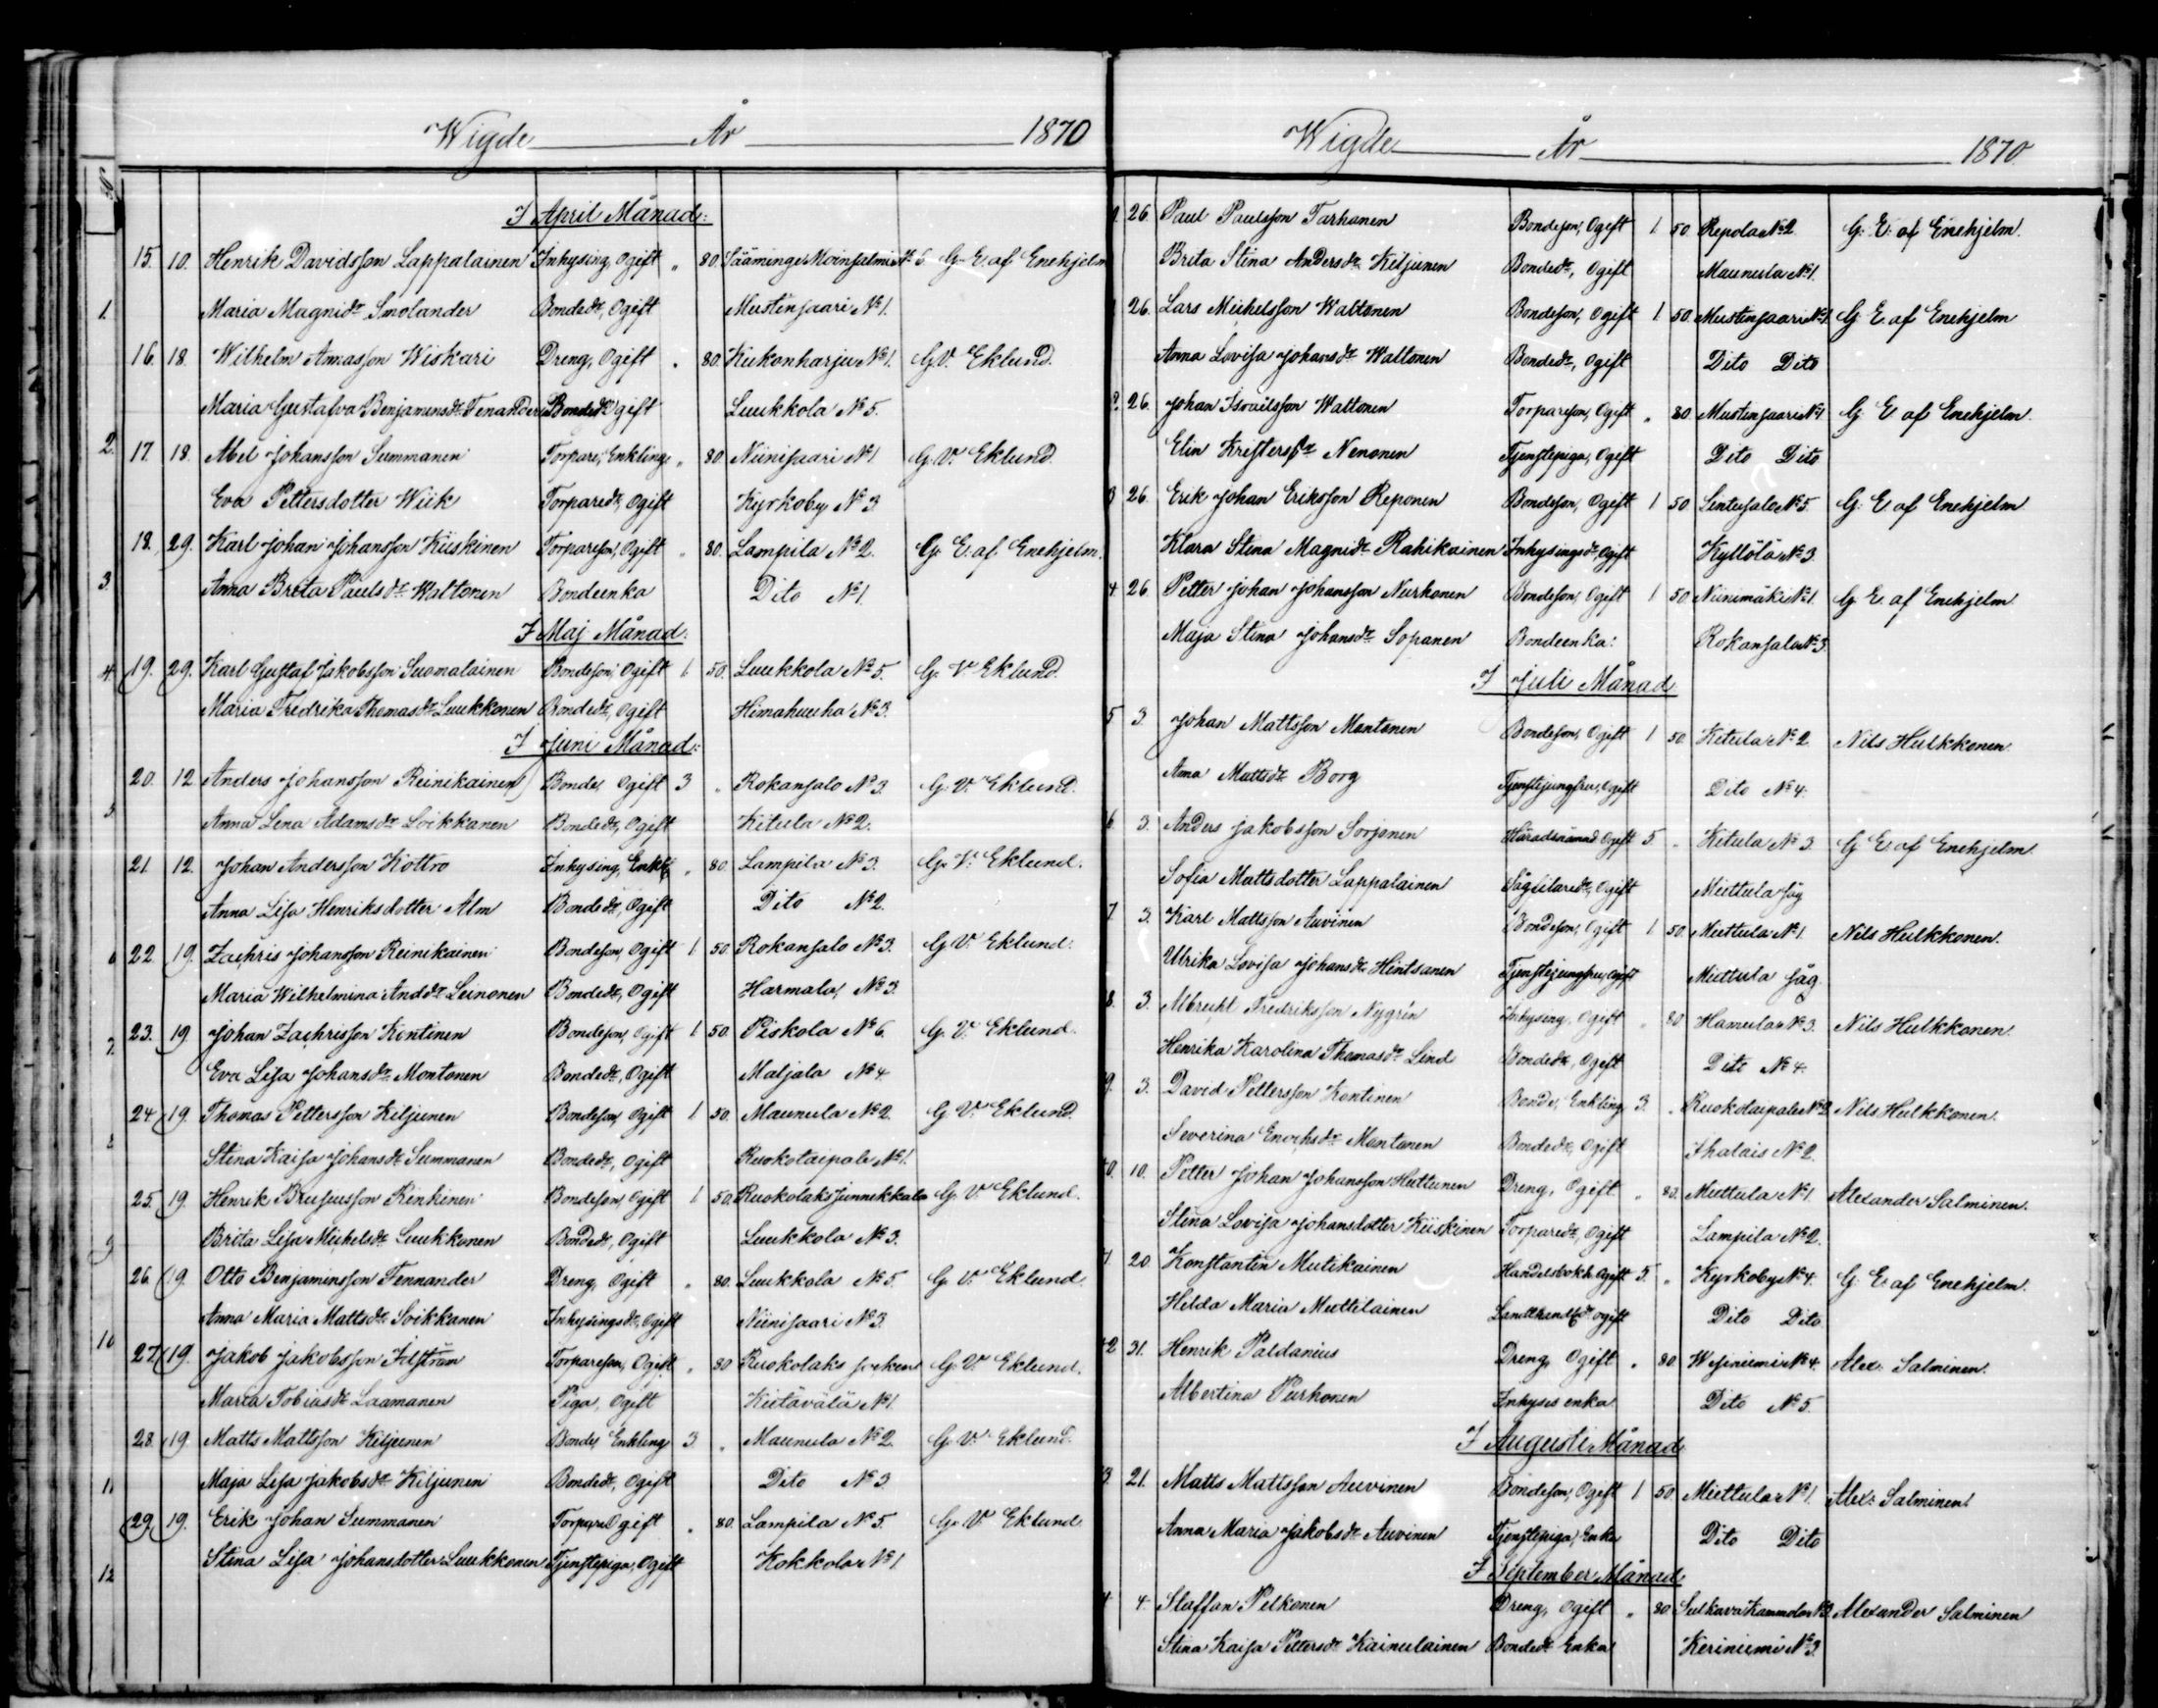 Wigde År 1870
I April Månad:
15. 10. Henrik Davidsson Lappalainen Inhysing, Ogift „ 80. Sääminge Moinsalmi № 6. G. E. af Enehjelm
Maria Magnidr Smolander Bondedr, Ogift Mustinsaari № 1.
16. 18. Wilhelm Annasson Wiskari Dreng, Ogift „ 80. Kukonharju № 1. G. V. Eklund.
Maria Gustafva Benjaminsdr Tenander Bondedr Ogift Luukkola № 5.
17. 18. Abel Johansson Summanen Torpare, Enkling „ 80. Niinisaari № 1. G. V. Eklund.
Eva Pettersdotter Wiik Torparedr, Ogift Kyrkoby № 3.
18. 29. Karl Johan Johansson Kiiskinen Torpareson, Ogift „ 80. Lampila № 2. G. E. af Enehjelm.
Anna Brita Paulsdr Waltonen Bondeenka Dito № 1.
I Maj Månad:
19. 29. Karl Gustaf Jakobsson Suomalainen Bondeson, Ogift 1. 50. Luukkola № 5. G. V. Eklund.
Maria Fredrika Thomasdr Luukkonen Bondedr, Ogift Himahuuha № 3.
I Juni Månad:
20. 12. Anders Johansson Reinikainen Bonde, Ogift 3 „ Rokansalo № 3. G. V. Eklund.
Anna Lena Adamsdr Loikkanen Bondedr, Ogift Kitula № 2.
21. 12. Johan Andersson Kottro Inhysing, Enkl „ 80. Lampila № 3. G. V. Eklund.
Anna Lisa Henriksdotter Alm Bondedr, Ogift Dito № 2.
22. 19. Zachris Johansson Reinikainen Bondeson, Ogift 1. 50. Rokansalo № 3. G. V. Eklund.
Maria Wilhelmina Anddr Leinonen Bondedr, Ogift Harmala, № 3.
23. 19. Johan Zachrisson Kontinen Bondeson, Ogift 1. 50. Piskola № 6. G. V. Eklund.
Eva Lisa Johansdr Montonen Bondedr, Ogift Maljala № 4.
24. 19. Thomas Pettersson Kiljunen Bondeson, Ogift 1. 50. Maunula № 2. G. V. Eklund.
Stina Kaisa Johansdr Summanen Bondedr, Ogift Ruokotaipale № 1.
25. 19. Henrik Brusiusson Kinkinen Bondeson, Ogift 1. 50. Ruokolaks Junnekkala G. V. Eklund.
Brita Lisa Michelsdr Luukkonen Bondedr, Ogift Luukkola № 3.
26. 19. Otto Benjaminsson Tennander Dreng, Ogift „ 80. Luukkola № 5. G. V. Eklund.
Anna Maria Mattsdr Loikkanen Inhysingsdr, Ogift Niinisaari № 3.
27. 19. Jakob Jakobsson Idström Torpareson, Ogift „ 80. Ruokolaks socken G. V. Eklund.
Maria Tobiasdr Laamanen Piga, Ogift Kietävälä № 1.
28. 19. Matts Mattsson Kiljunen Bonde, Enkling 3. „ Maunula № 2. G. V. Eklund.
Maja Lisa Jakobsdr Kiljunen Bondedr, Ogift Dito № 3.
29. 19. Erik Johan Summanen Torpare Ogift „ 80. Lampila № 5. G. V. Eklund.
Stina Lisa Johansdotter Luukkonen Tjenstepiga, Ogift Kokkola № 1.
Wigde År 1870.
26. Paul Paulsson Tarhanen Bondeson, Ogift 1. 50. Repola № 2. G. E. af Enehjelm.
Brita Stina Andersdr Kiljunen Bondedr, Ogift Maunula № 1.
26. Lars Michelsson Waltonen Bondeson, Ogift 1. 50. Mustinsaari № 1. G. E. af Enehjelm
Anna Lovisa Johansdr Waltonen Bondedr, Ogift Dito Dito
26. Johan Israilsson Waltonen Torpareson, Ogift „ 80. Mustinsaari № 1. G. E. af Enehjelm.
Elin Kristersdr Nenonen Tjenstepiga, Ogift Dito Dito
3 26. Erik Johan Eriksson Reponen Bondeson, Ogift 1 50. Lintusalo № 5. G. E. af Enehjelm
Klara Stina Magnidr Rahikainen Inhysingsdr, Ogift Kyllölä № 3.
4 26. Petter Johan Johansson Nurhonen Bondeson, Ogift 1 50. Niinimäki № 1. G. E. af Enehjelm
Maja Stina Johansdr Sopanen Bondeenka: Rokansalo № 3.
I Juli Månad
5 3. Johan Mattsson Montonen Bondeson, Ogift 1 50 Kitula № 2. Nils Hulkkonen.
Anna Mattsdr Borg Tjenstejungfru, Ogift Dito № 4.
6. 3. Anders Jakobsson Sorjonen Häradsnämnd Ogift 5. „ Kitula № 3. G. E. af Enehjelm.
Sofia Mattsdotter Lappalainen Sågfilaredr, Ogift Miettula såg
7 3. Karl Mattsson Auvinen Bondeson, Ogift 1 50. Miettula № 1. Nils Hulkkonen.
Ulrika Lovisa Johansdr Hintsanen Tjenstejungfru, Ogift Miettula såg.
8. 3. Albrecht Fredriksson Nygrén Inhysing, Ogift „ 80. Hamula № 3. Nils Hulkkonen.
Henrika Karolina Thomasdr Lind Bondedr, Ogift Dito № 4.
9. 3. David Pettersson Kontinen Bonde, Enkling 3. „ Ruokotaipale № 2. Nils Hulkkonen.
Severina Enochsdr Montonen Bondedr, Ogift Ihalais № 2.
10. Petter Johan Johansson Huttunen Dreng, Ogift „ 80. Miettula № 1. Alexander Salminen.
Stina Lovisa Johansdotter Kiiskinen Torparedr, Ogift Lampila № 2.
20. Konstantin Mutikainen Handelsbokh. Ogift 5. „ Kyrkoby № 4. G. E. af Enehjelm.
Hilda Maria Miettilainen Landthandldr ogift Dito Dito.
31. Henrik Paldanius Dreng, Ogift „ 80. Wesiniemi № 4. Alex. Salminen.
Albertina Purhonen Inhyses enka Dito № 5.
I Augusti Månad
21. Matts Mattsson Auvinen Bondeson, Ogift 1. 50. Miettula № 1. Alex. Salminen.
Anna Maria Jakobsdr Auvinen Tjenstepiga, Enka Dito Dito
I September Månad:
4. Staffan Pelkonen Dreng, Ogift „ 80 Sulkava Kammola № 3. Alexander Salminen
Stina Kaisa Pettersdr Kainulainen Bondedr Enka Keriniemi № 3.